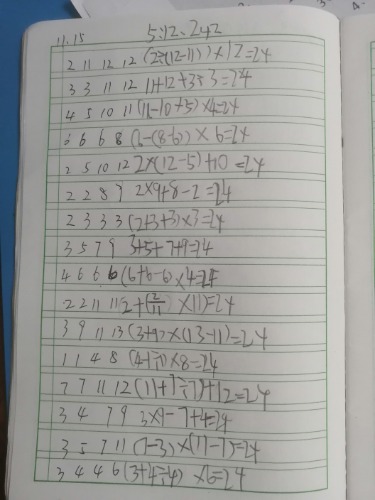 11.15 5:12. 242
2 11 12 12 (2÷(12-11))×12=24
3 3 11 12 11+12+3÷3=24
4 5 10 11 (11-10+5)×4=24
6 6 6 8 (6-(8-6))×6=24
2 5 10 12 2×(12-5)+10=24
2 2 8 9 2×9+8-2=24
2 3 3 3 (2+3+3)×3=24
3 5 7 9 3+5+7+9=24
4 6 6 6 (6+6-6)×4=24
2 2 11 11 (2+2/11)×11=24
3 9 11 13 (3+9)×(13-11)=24
1 1 4 8 (4-1÷1)×8=24
7 7 11 12 (11+7÷7)+12=24
3 4 7 9 3×9-7+4=24
3 5 7 11 (7-3)×(11-7)=24
3 4 4 6 (3+4÷4)×6=24